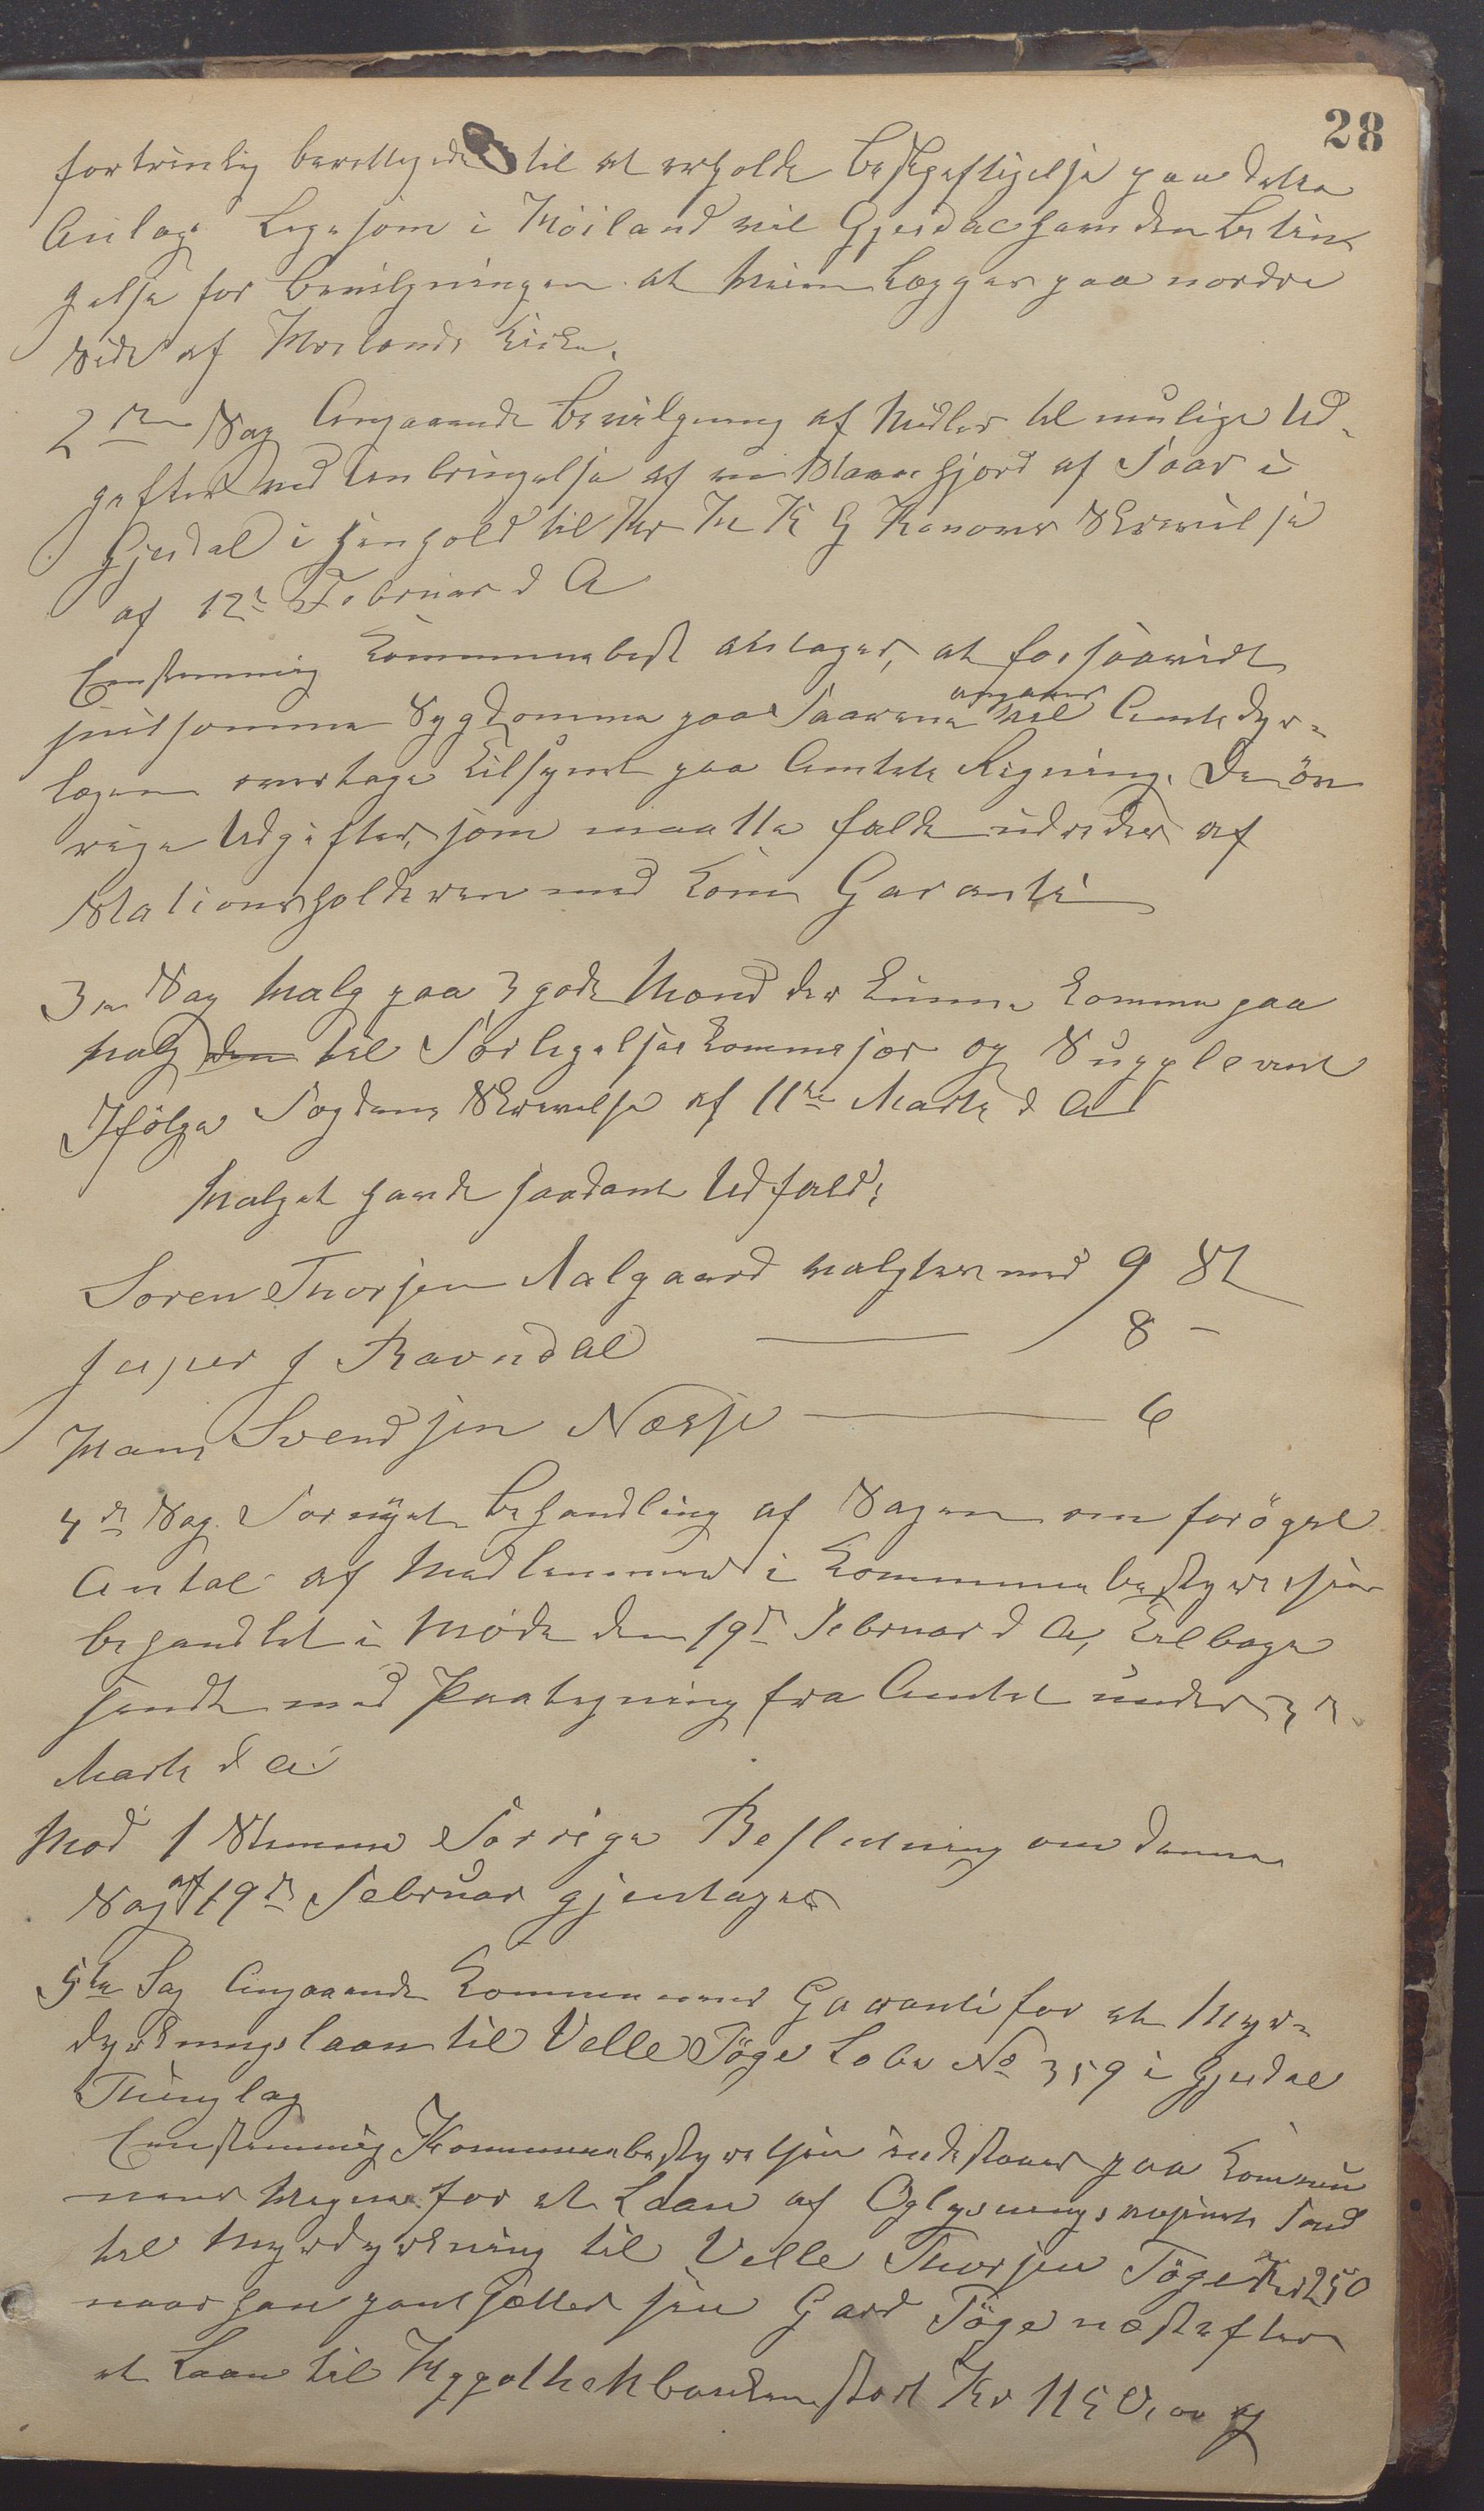 28
fortrinlig berettigede til at erholde Beskjeftigelse paa dette
Anlæg. Ligesom i Moiland vil Gjesdal have den Betin
gelse for Bevilgningen at Veien lægges paa nordre
Side af Moilands Kirke.
2den Sag Angaaende Bevilgning af Midler til mulige Ud-
gifter ved Anbringelse af en Stamhjord af Faar i
Gjesdal i Henhold til Skrivelse
af 12te Februar d A
Enstemmig Kommunebest antager, at forsaavidt
smitsomme Sygdomme paa Faarene angaar vil Amtsdyr-
lægen overtage Tilsynet paa Amtets Regning. De öv
rige Udgifter, som maatte falde udredes af
Stationsholderen med Kom Garanti
3die Sag Valg paa 3 gode Mænd der kunne komme paa
Valg den til Forligelseskommisær og Suppleant
Ifölge Fogdens Skrivelse af 11te Marts d A
Valget havde saadant Udfald:
Soren Thorsen Aalgaard valgtes med 9 St
Jesper J Ravndal 8 –
Hans Svendsen Næsse 6
4de Sag. Fornyet Behandling af Sagen om forøget
Antal af Medlemmer i Kommunebestyrelsen
behandlet i Möde den 19de Februar d A, tilbage
sendt med Paategning fra Amtet under 3de
Marts d A
Mod 1 Stemme Forrige Beslutning om denne
Sag af 19de Februar gjentages
5te Sag Angaaende Kommunens Garanti for et Myr-
dyrkningslaan til Velle Töge Lobe No 359 i Gjesdal
Thinglag
Enstemmig Kommunebestyrelsen indestaar paa Kommu
nens Vegne for et Laan af Oplysningsvæsenets Fond
til Myrdyrkning til Velle Thorsen Töge Kr 250
naar han pantsætter sin Gard Töge næstefter
et Laan til Hypothekbanken stort Kr 1150,00 og